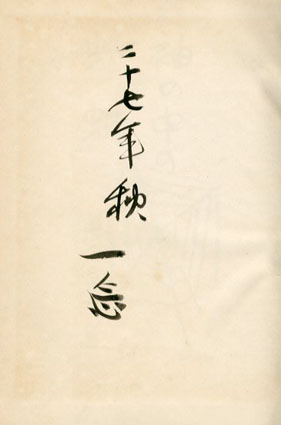 二十七年秋
一念